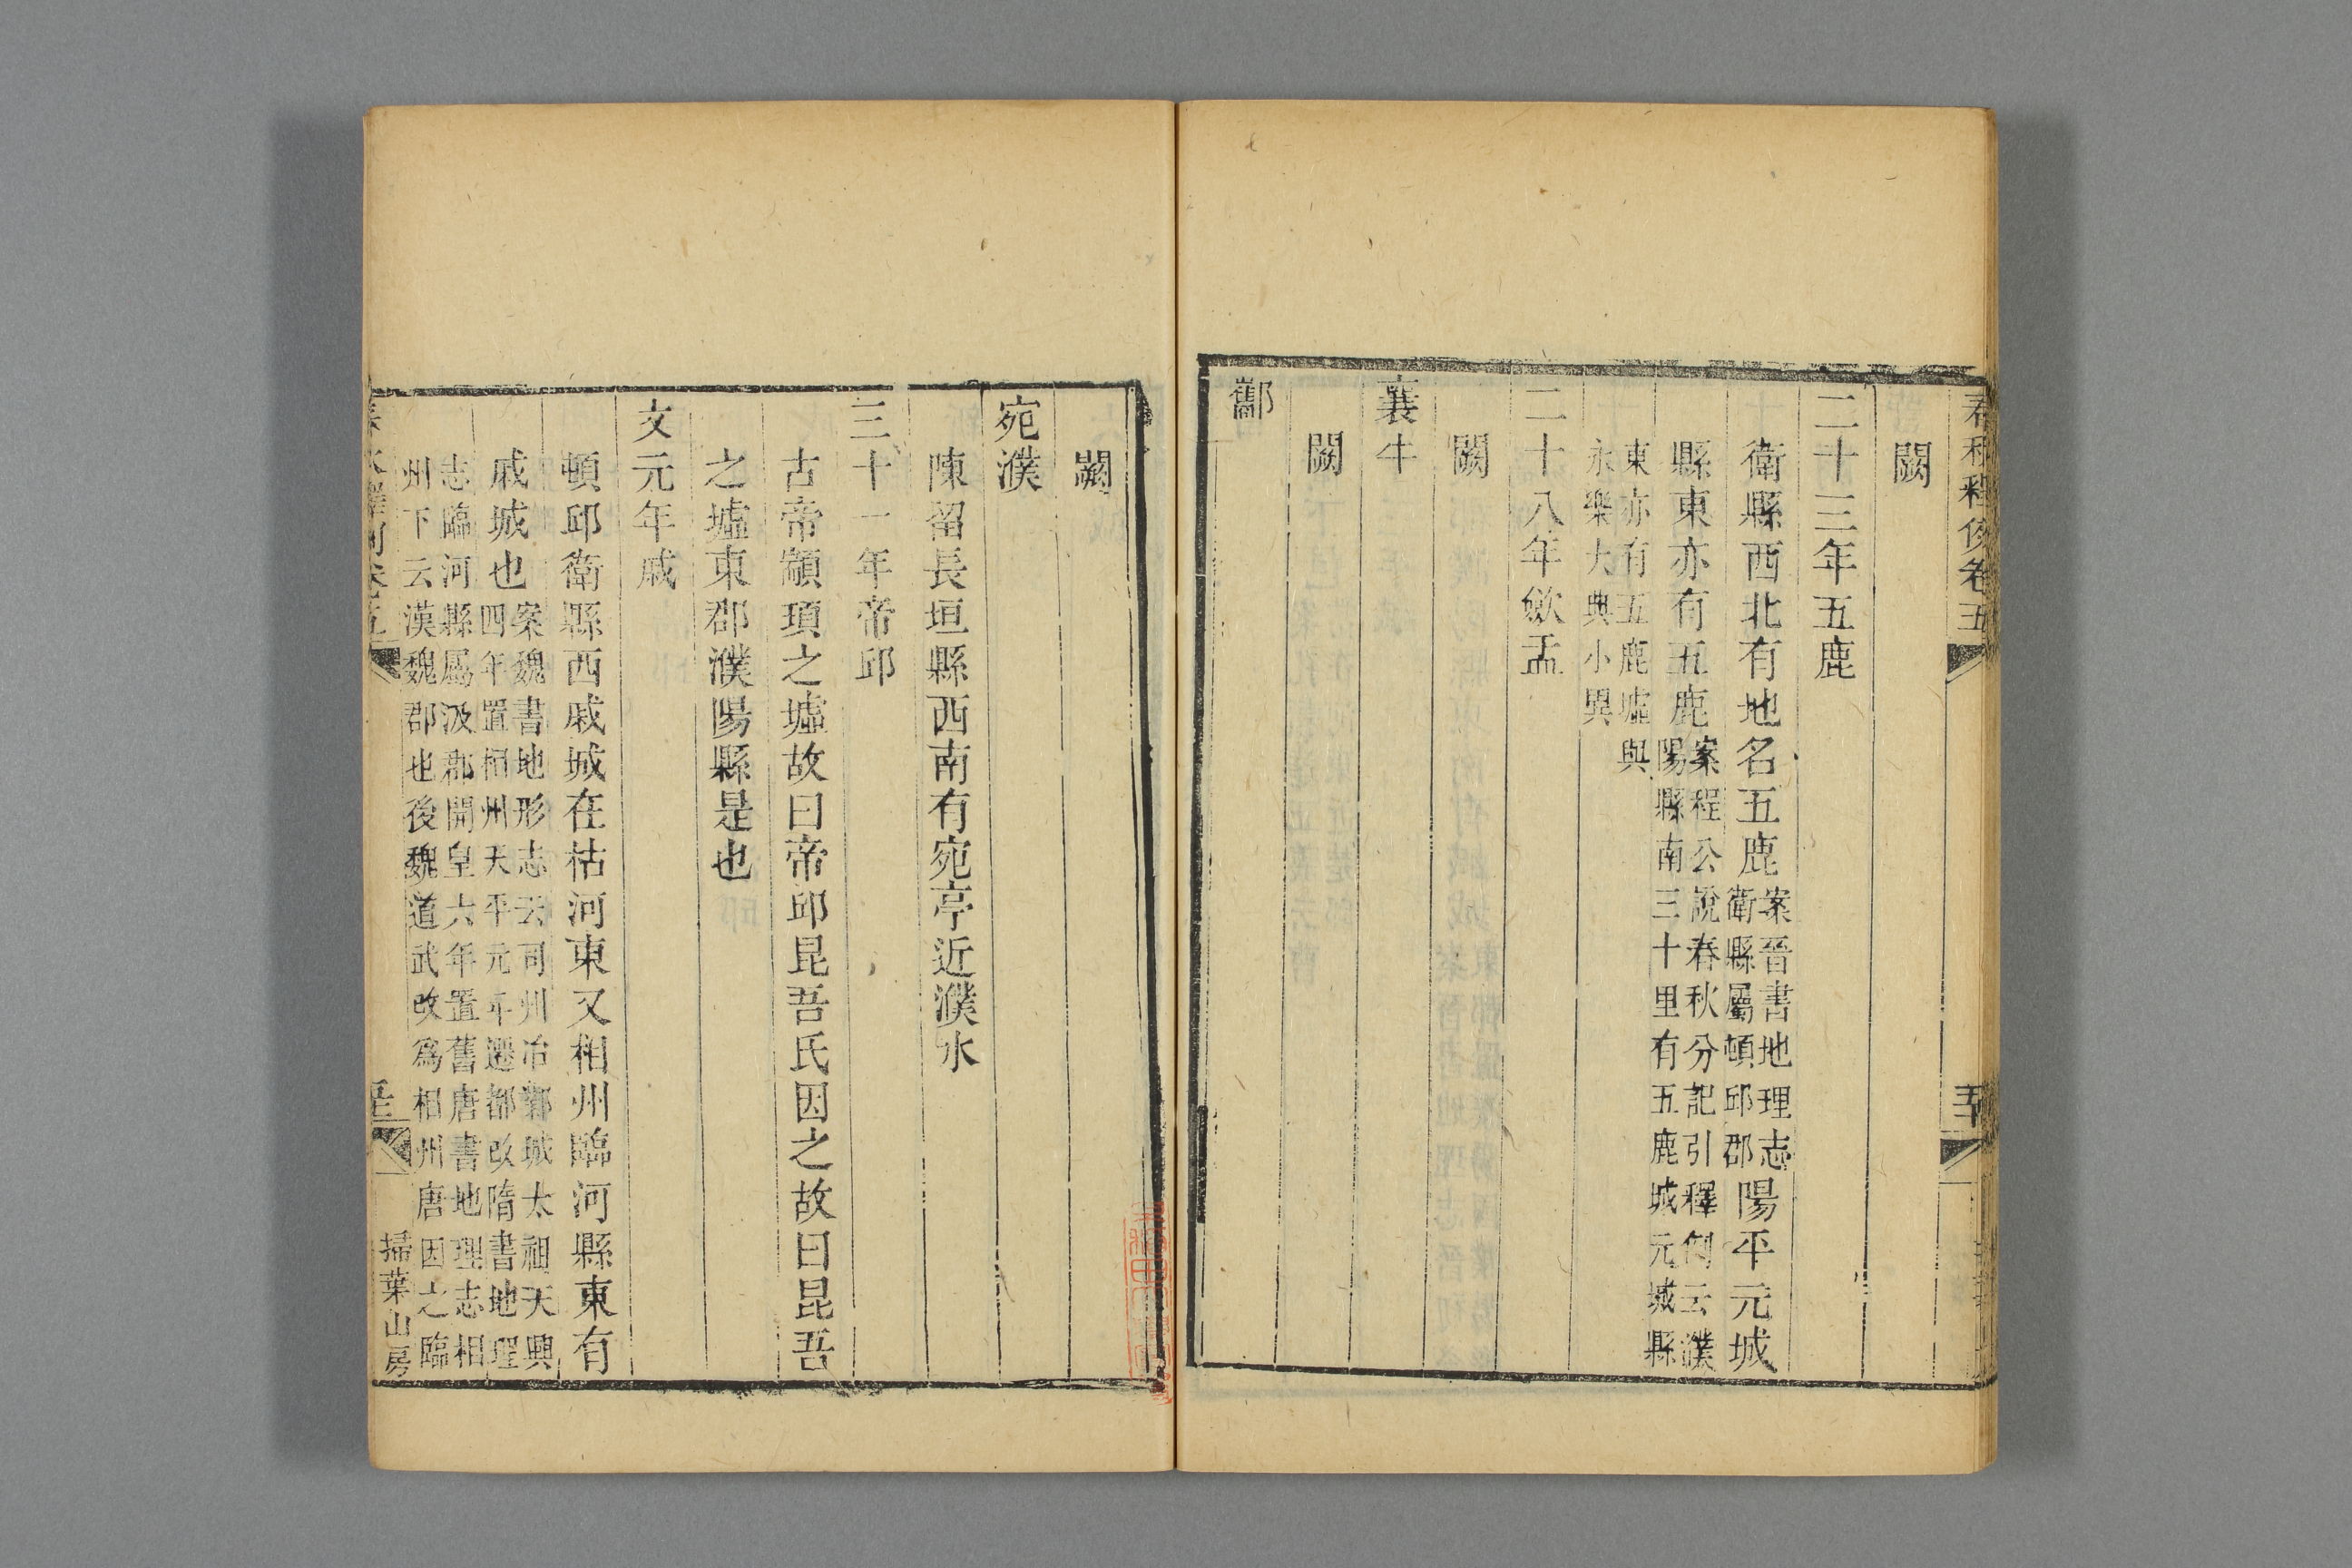 春秋釋例卷五
闕
二十三年五鹿
衛縣西北有地名五鹿案晉書地理志衛縣屬頓邱郡陽平元城
縣東亦有五鹿案程公說春秋分記引釋例云濮陽縣南三十里有五鹿城元城縣
東亦有五鹿墟與永樂大典小異
二十八年斂盂
闕
襄牛
闕
酅
闕
宛濮
陳留長垣縣西南有宛亭近濮水
三十一年帝邱
古帝顓頊之墟故曰帝邱昆吾氏因之故曰昆吾
之墟東郡濮陽縣是也
文元年戚
頓邱衛縣西戚城在枯河東又相州臨河縣東有
戚城也案魏書地形志云司州治鄴城太祖天興四年置相州天平元年遷都改隋書地理
志臨河縣屬汲郡開皇六年置舊唐書地理志相州下云漢魏郡也後魏道武改為相州唐因之臨
掃葉山房